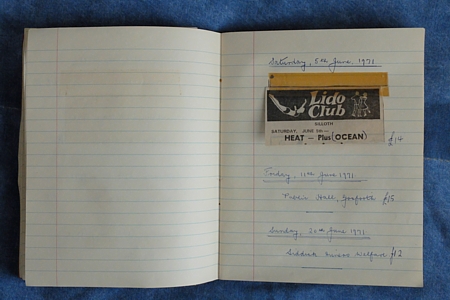 Saturday, 5th June. 1971
Lido
Club
SILLOTH
SATURDAY, JUNE 5th—
HEAT - Plus (OCEAN)
£14
Friday, 11th June 1971
Public Hall, Gosforth £15
Sunday, 20th June 1971
Siddick Miners Welfare £12